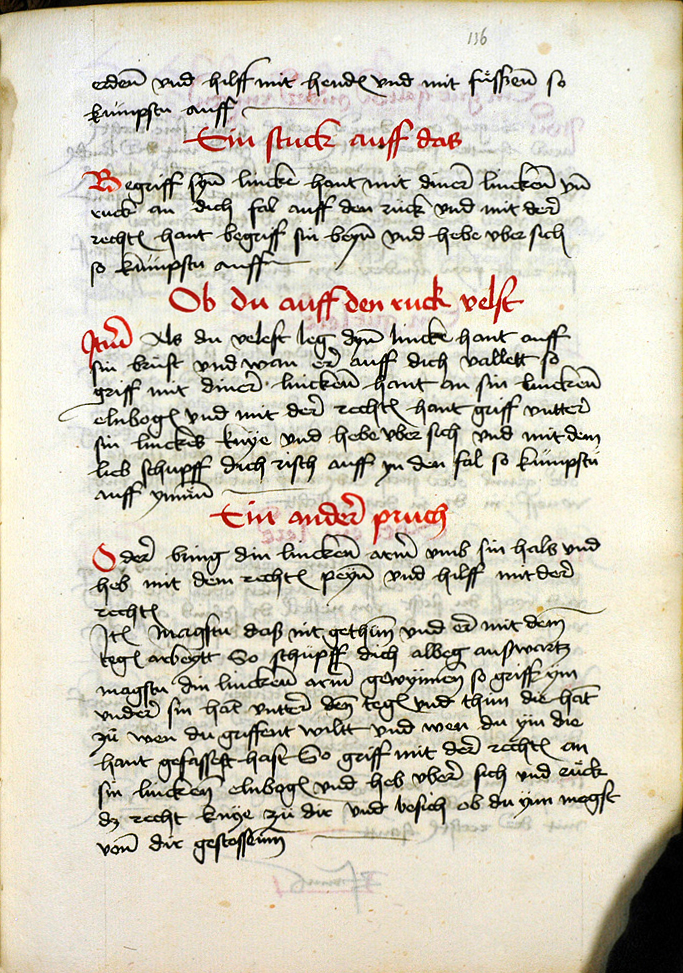 136
erden vnd hilff mit hendē vnd mit füsszen so
kümpstu auff
Ein stuck auff das
Begriff syn lincke hant mit diner lincken vn̄
ruck an dich fal auff den rück vnd mit der
rechtē hant begriff sin beyn vnd hebe vber sich
so kümpstu auff
Ob du auff den ruck velst
Itm̄ Als du velest leg dyn lincke hant auff
sin brust vnd wan er auff dich vallett so
griff mit diner lincken hant an sin lincken
elnbogē vnd mit der rechtē hant griff vntter
sin linckes knye vnd hebe vber sich vnd mit dem
lieb schupff dich risch auff yn den fal so kümpstu
auff ymm̄
Ein ander pruch
Oder bring din lincken arm vmb sin hals vnd
heb mit dem rechtē peyn vnd hilff mit der
rechtē
Itē Magstu daß nit gethun vnd er mit dem
tegē arbeytt So schüpff dich albeg auswartz
magstu din lincken arm gewynnen so griff ym
vnder sin hāt vntter den tegē vnd thun die hāt
zü wen du griffent wiltt vnd wen du ym die
hant gefasseft hast So griff mit der rechtē an
sin lincken elnbogē vnd heb vber sich vnd rück
dz recht knye zü dir vnd besich ob du ym mogst
vonn dir gestossenn